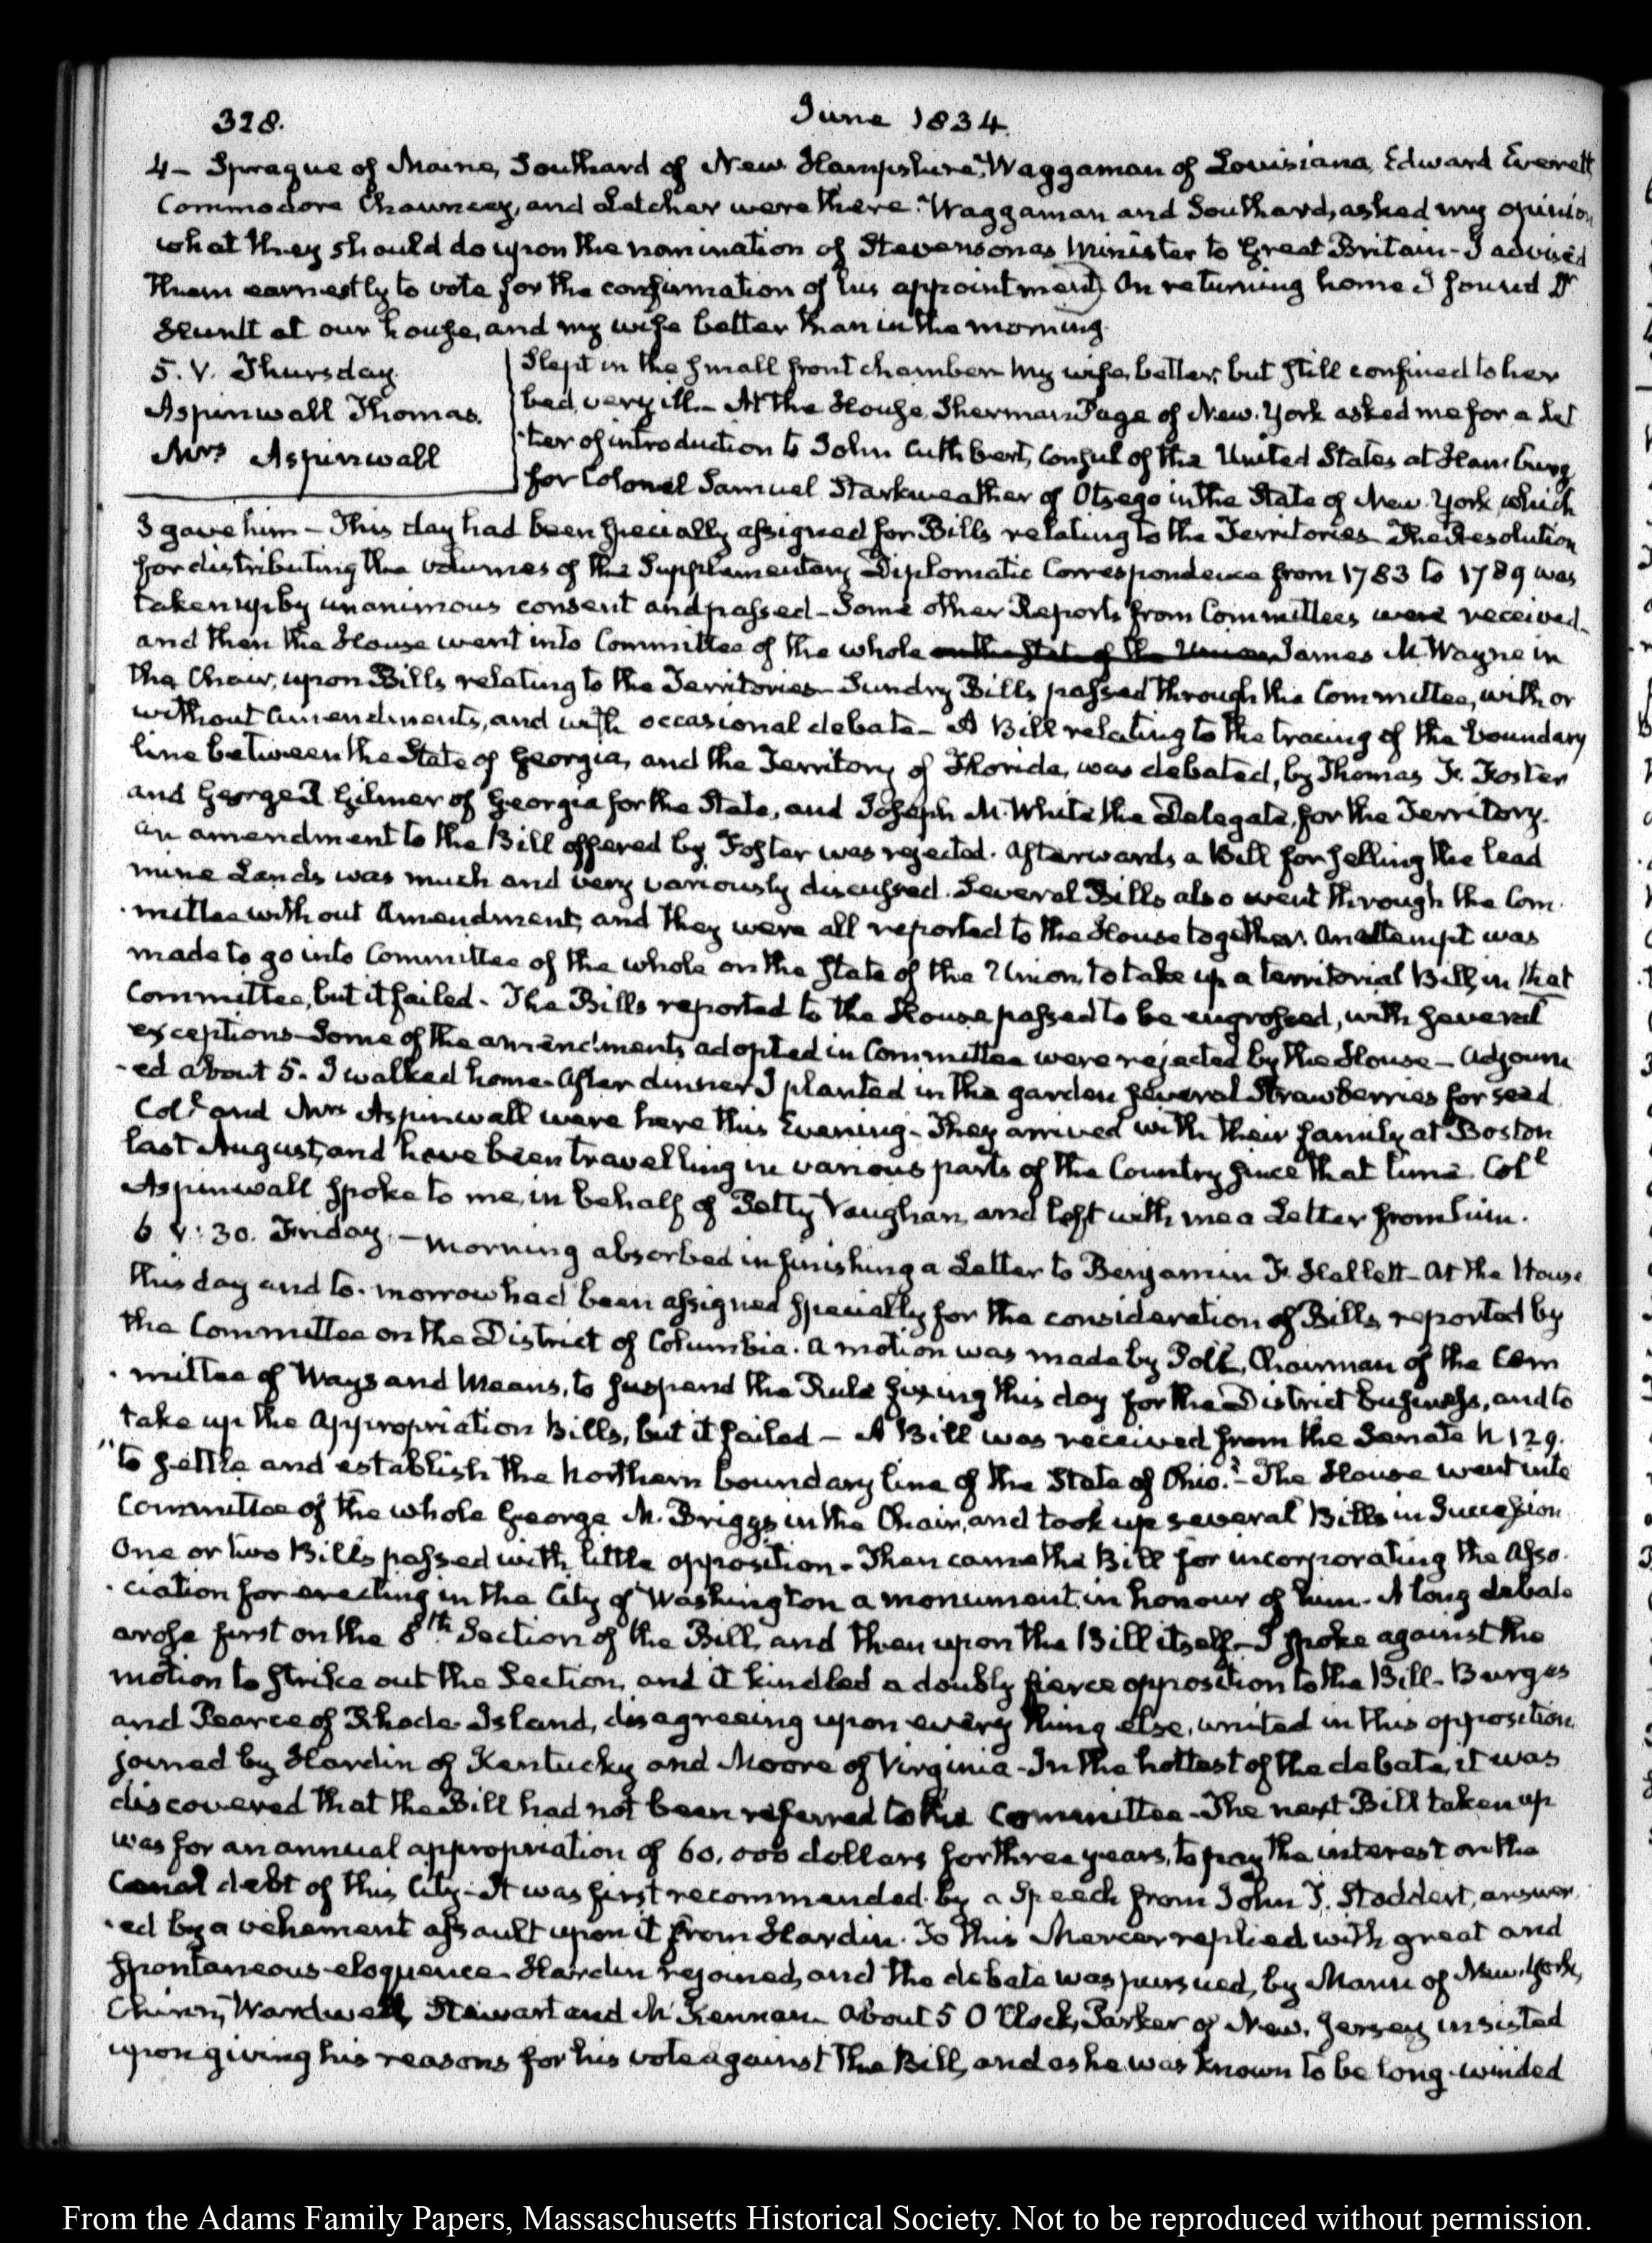 328.
June 1834.
4 - Sprague of Maine, Southard of New Hampshire, Waggaman of Louisiana, Edward Everett
Commodore Chauncey, and Letcher were there. Waggaman and Southard, asked my opinion
what they should do upon the nomination of Stevenson as Minister to Great Britain - I advised
them earnestly to vote for the confirmation of his appointment) On returning home I found Dr
Hunt at our house, and my wife better than in the morning.
5. V. Thursday.
Aspinwall Thomas.
Mrs Aspinwall
Slept in the small front chamber. My wife, better, but still confined to her
bed, very ill. - At the House Sherman Page of New-York asked me for a Let
-ter of introduction to John Cuthbert, Consul of the United States at Hamburg
for Colonel Samuel Starkweather of Otsego in the State of New-York, which
I gave him - This day had been specially assigned for Bills relating to the Territories - The Resolution
for distributing the volumes of the Supplementary Diplomatic Correspondence from 1783 to 1789 was
taken up by unanimous consent and passed - Some other Reports from Committees were received -
and then the House went into Committee of the whole on the State of the Union James M. Wayne in
the Chair, upon Bills relating to the Territories - Sundry Bills passed through the Committee, with or
without Amendments, and with occasional debate - A Bill relating to the tracing of the boundary
line between the State of Georgia, and the Territory of Florida, was debated, by Thomas F. Foster
and George R Gilmer of Georgia for the State, and Joseph M. White the Delegate, for the Territory.
an amendment to the Bill offered by Foster was rejected. Afterwards a Bill for selling the lead
mine Lands was much and very variously discussed. Several Bills also went through the Com
-mittee without Amendment, and they were all reported to the House together. An attempt was
made to go into Committee of the whole on the State of the Union, to take up a territorial Bill, in that
Committee, but it failed - The Bills reported to the House passed to be engrossed, with several
exceptions - Some of the amendments adopted in Committee were rejected by the House - Adjourn
-ed about 5. I walked home. After dinner I planted in the garden several Strawberries for seed
Coll and Mrs Aspinwall were here this Evening - They arrived with their family at Boston
last August, and have been travelling in various parts of the Country since that time. Coll
Aspinwall spoke to me, in behalf of Petty Vaughan, and left with me a Letter from him.
6. V: 30. Friday. - Morning absorbed in finishing a Letter to Benjamin F. Hallett - At the House
this day and to-morrow had been assigned specially for the consideration of Bills reported by
the Committee on the District of Columbia. A motion was made by Polk, Chairman of the Com
-mittee of Ways and Means, to suspend the Rule fixing this day for the District business, and to
take up the Appropriation Bills, but it failed - A Bill was received from the Senate N 129.
"to settle and establish the Northern boundary line of the State of Ohio." - The House went into
Committee of the whole George N. Briggs in the Chair, and took up several Bills in Succession
One or two Bills passed with little opposition - Then came the Bill for incorporating the Asso-
-ciation for erecting in the City of Washington a monument in honour of him. A long debate
arose first on the 8th Section of the Bill, and then upon the Bill itself - I spoke against the
motion to strike out the Section, and it kindled a doubly fierce opposition to the Bill - Burges
and Pearce of Rhode-Island, disagreeing upon every thing else, united in this opposition
joined by Hardin of Kentucky and Moore of Virginia - In the hottest of the debate, it was
discovered that the Bill had not been referred to the Committee - The next Bill taken up
was for an annual appropriation of 60.000 dollars for three years, to pay the interest on the
Canal debt of this City - It was first recommended by a Speech from John T. Stoddert, answer
-ed by a vehement assault upon it from Hardin. To this Mercer replied with great and
spontaneous eloquence. Hardin rejoined, and the debate was pursued, by Mann of New-York,
Chinn, Wardwell, Stewart and McKennan. About 5 O'Clock, Parker of New-Jersey insisted
upon giving his reasons for his vote against the Bill, and as he was known to be long-winded
From the Adams Family Papers, Massaschusetts Historical Society. Not to be reproduced without permission.